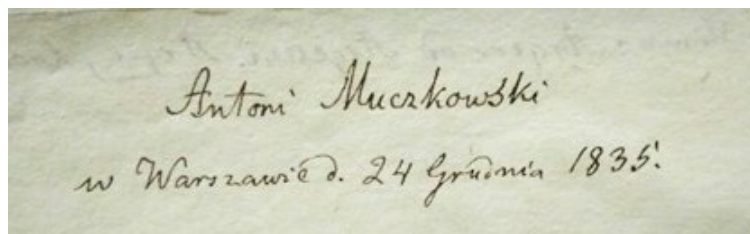 Antoni Muczkowski
w Warszawie d. 24 Grudnia 1835.